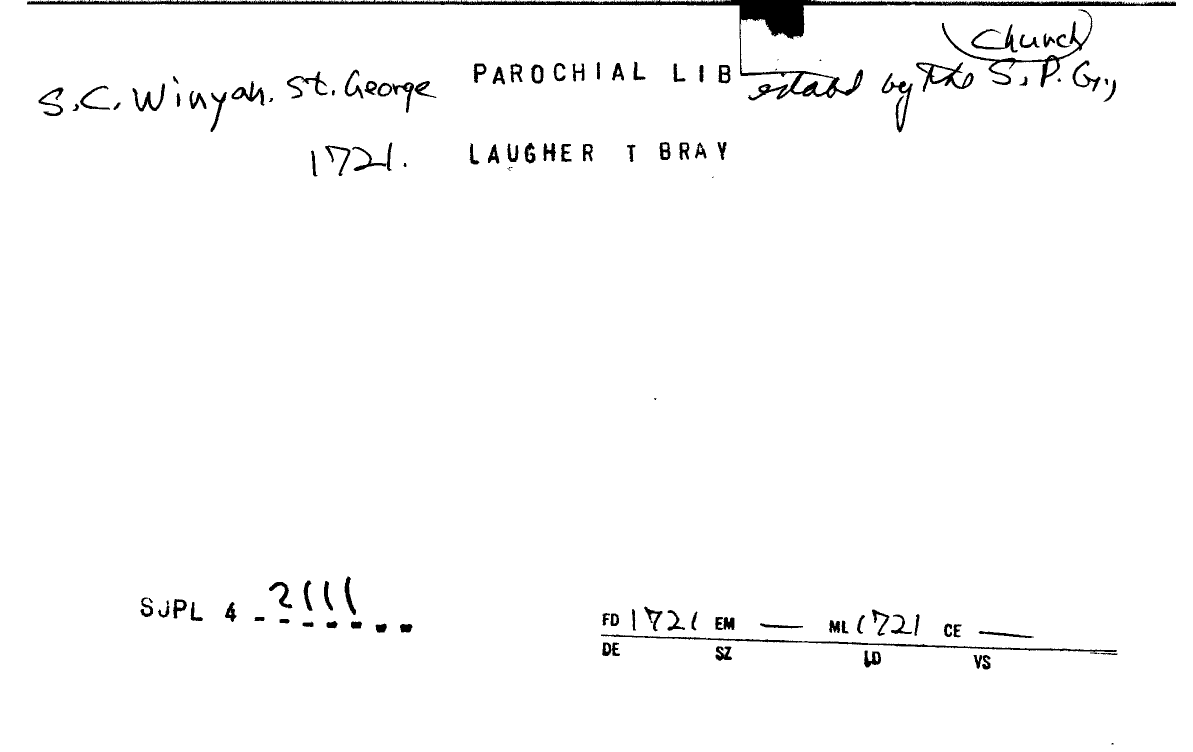 Church
S.C. Winyah. St. George PAROCHIAL LIB estabd by the S.P.G.,
1721. LAUGHER T BRAY
SJPL 4 2111
FD 1721 EM — ML 1721 CE —
DE SZ LD VS